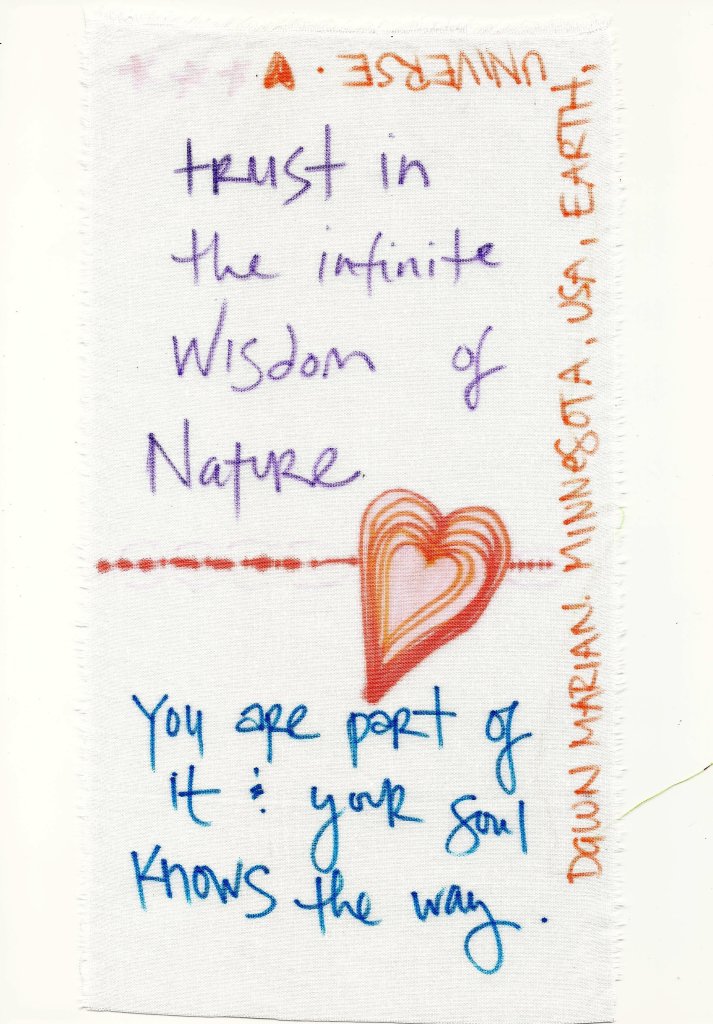 trust in
the infinite
Wisdom of
Nature
You are part of
it & your soul
knows the way.
DAWN MARIAN. MINNESOTA, USA, EARTH,
UNIVERSE.